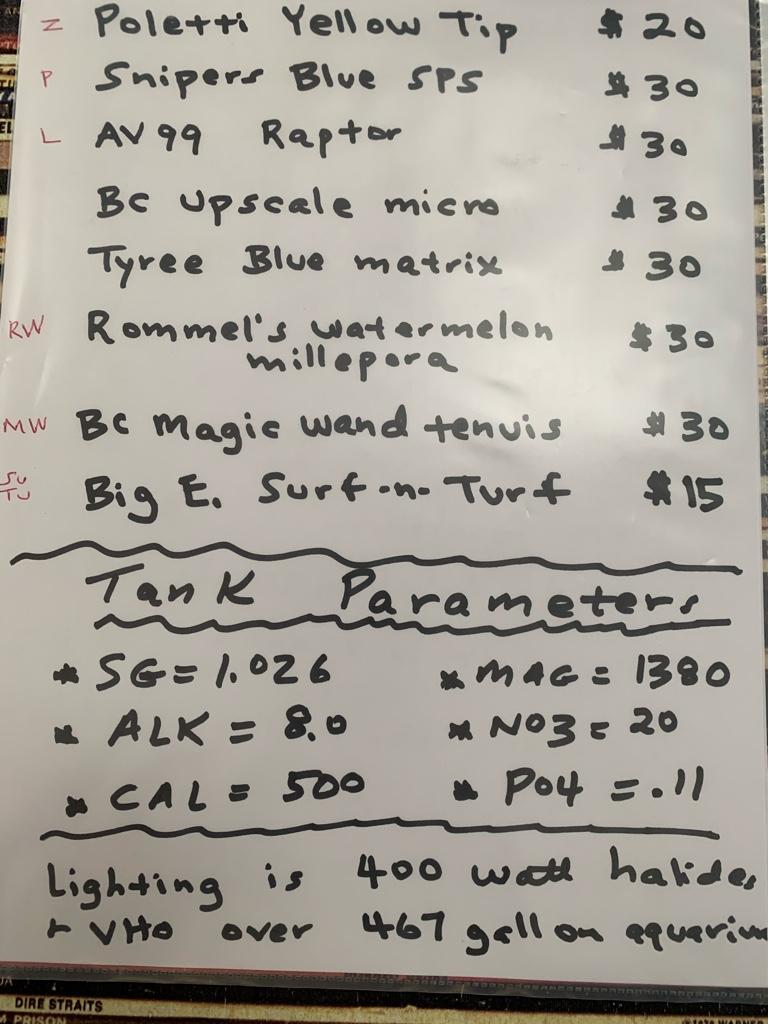 Z Poletti Yellow Tip $20
P Snipers Blue SPS $30
L AV99 Raptor $30
BC upscale micro $30
Tyree Blue matrix $30
RW Rommel's watermelon $30
millepora
MW BC Magic wand tenuis $30
SU
TU Big E. Surf-n-Turf $15
Tank Parameters
* SG = 1.026 * MAG = 1380
* ALK = 8.0 * NO3 = 20
* CAL = 500 * PO4 = .11
Lighting is 400 watt halides
+ VHO over 467 gallon aquarium
DIRE STRAITS
PRISON